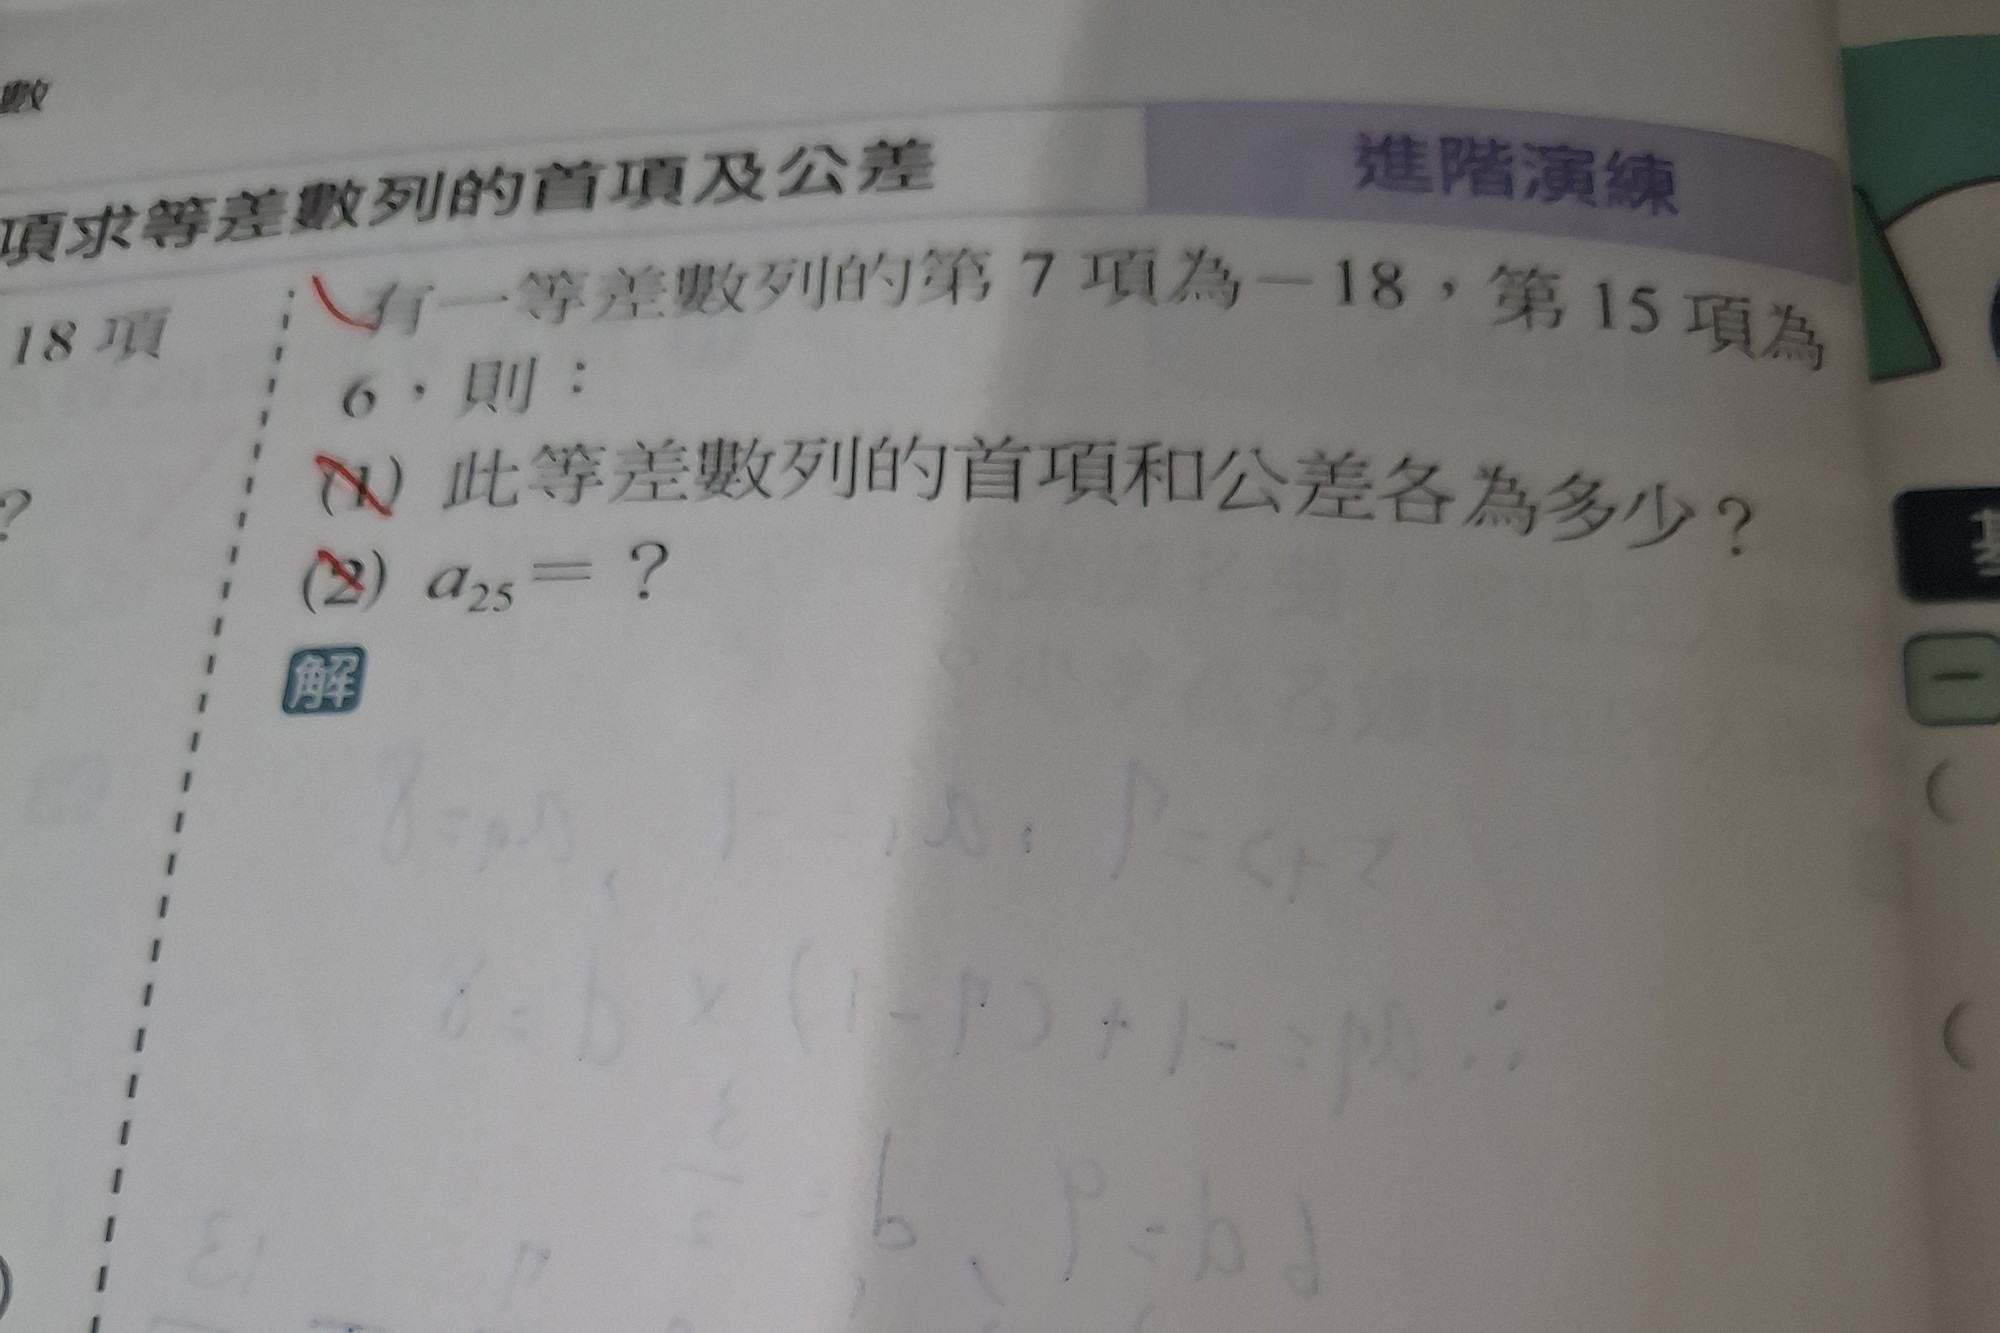 數
項求等差數列的首項及公差
進階演練
18 項
?
有一等差數列的第 7 項為－18，第 15 項為
6，則：
(1) 此等差數列的首項和公差各為多少？
(2) a₂₅＝？
解
一
(
(